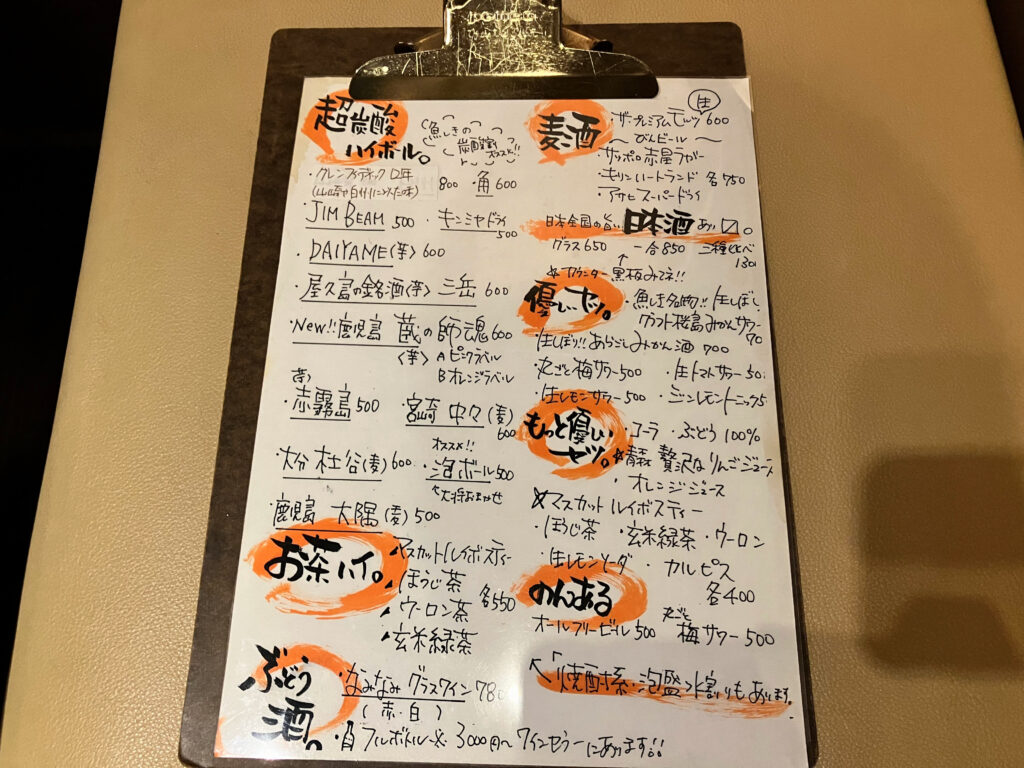 超炭酸
ハイボール。
魚しきの
炭酸割
オススメ!!
・グレンフィディック12年 800 ・角 600
(山崎や白州に似た味)
・JIM BEAM 500 ・キンミヤドライ
500
・DAIYAME(芋) 600
・屋久島の銘酒(芋) 三岳 600
・New!!鹿児島 蔵の師魂 600
(芋) A ピンクラベル
B オレンジラベル
(芋)
・赤霧島 500 ・宮崎 中々(麦)
600
オススメ!!
・大分 杜谷(麦) 600 ・泡ボール 500
↖大将おまかせ
・鹿児島 大隅(麦) 500
お茶ハイ。
マスカットルイボスティー
ほうじ茶
ウーロン茶
玄米緑茶
各550
ぶどう
酒。
・なみなみグラスワイン 780
(赤・白)
・フルボトル 3000円〜 ワインセラーにあります!!
麦酒
生
・ザ・プレミアムモルツ 600
〜びんビール〜
・サッポロ赤星ラガー
・キリンハートランド 各750
アサヒスーパードライ
日本全国の旨い 日本酒 あり〼。
グラス 650 一合 850 三種比べ
130
☆カウンター黒板みてネ!!
優しいヤツ。
・魚しき名物!! 生しぼし
クラフト桜島みかんサワー
70
・生しぼり!! あらごしみかん酒 700
・丸ごと梅サワー 500 ・生トマトサワー 50
・生レモンサワー 500 ・ジンレモントニック 5
もっと優しい
ヤツ。
・コーラ ・ぶどう100%
☆青森 贅沢なりんごジュース
・オレンジジュース
☆マスカットルイボスティー
・ほうじ茶 ・玄米緑茶 ・ウーロン
・生レモンソーダ ・カルピス
各400
のんある
オールフリービール 500 丸ごと
梅サワー 500
「焼酎系・泡盛」水割りもあります。